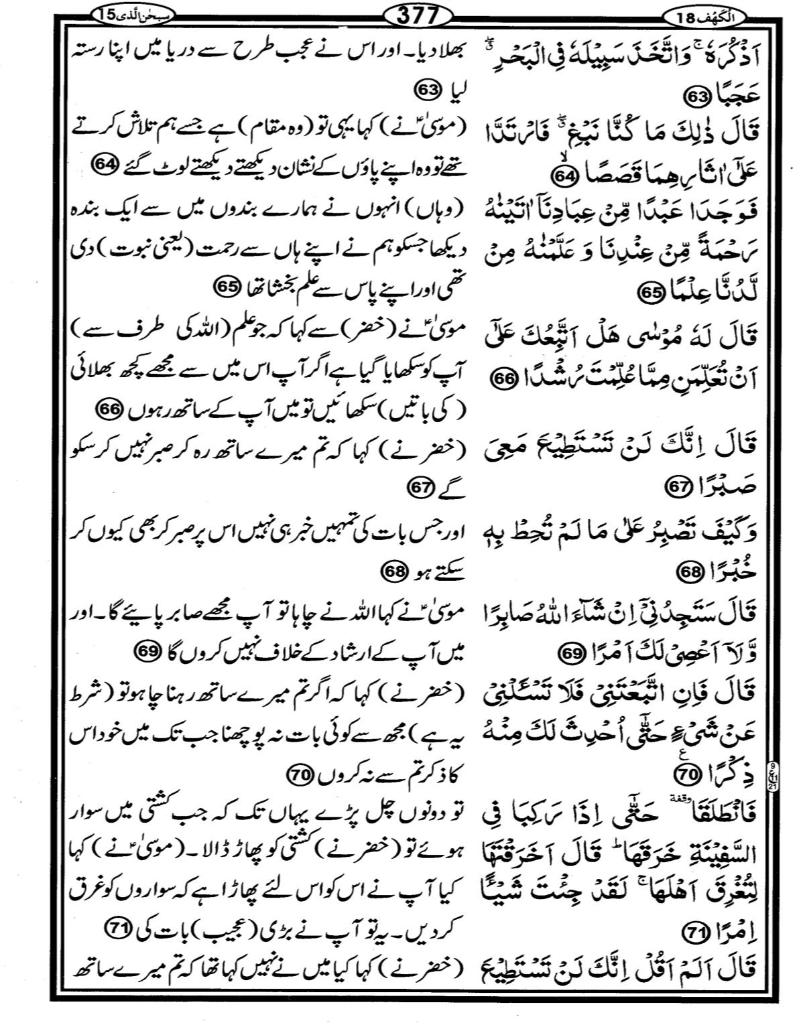 الكهف 18
377
سبحٰن الّذی 15
اَذۡكُرَهٗ‌ ۚ وَاتَّخَذَ سَبِيۡلَهٗ فِى الۡبَحۡرِ ۖ
عَجَبًا 63
قَالَ ذٰلِكَ مَا كُنَّا نَبۡغِ ۖ فَارۡتَدَّا
عَلٰٓى اٰثَارِهِمَا قَصَصًا ۙ 64
فَوَجَدَا عَبۡدًا مِّنۡ عِبَادِنَاۤ اٰتَيۡنٰهُ
رَحۡمَةً مِّنۡ عِنۡدِنَا وَعَلَّمۡنٰهُ مِنۡ
لَّدُنَّا عِلۡمًا 65
قَالَ لَهٗ مُوۡسٰى هَلۡ اَتَّبِعُكَ عَلٰٓى
اَنۡ تُعَلِّمَنِ مِمَّا عُلِّمۡتَ رُشۡدًا 66
قَالَ اِنَّكَ لَنۡ تَسۡتَطِيۡعَ مَعِىَ
صَبۡرًا 67
وَكَيۡفَ تَصۡبِرُ عَلٰى مَا لَمۡ تُحِطۡ بِهٖ
خُبۡرًا 68
قَالَ سَتَجِدُنِىۡۤ اِنۡ شَآءَ اللّٰهُ صَابِرًا
وَّلَاۤ اَعۡصِىۡ لَكَ اَمۡرًا 69
قَالَ فَاِنِ اتَّبَعۡتَنِىۡ فَلَا تَسۡئَلۡنِىۡ
عَنۡ شَىۡءٍ حَتّٰٓى اُحۡدِثَ لَكَ مِنۡهُ
ذِكۡرًا 70 ع
فَانْطَلَقَا وقفة حَتّٰٓى اِذَا رَكِبَا فِى
السَّفِيۡنَةِ خَرَقَهَا‌ ؕ قَالَ اَخَرَقۡتَهَا
لِتُغۡرِقَ اَهۡلَهَا‌ ۚ لَقَدۡ جِئۡتَ شَيۡـًٔـا
اِمۡرًا 71
قَالَ اَلَمۡ اَقُلۡ اِنَّكَ لَنۡ تَسۡتَطِيۡعَ
بھلا دیا۔ اور اس نے عجب طرح سے دریا میں اپنا رستہ
لیا 63
(موسیٰؑ نے) کہا یہی تو (وہ مقام) ہے جسے ہم تلاش کرتے
تھے تو وہ اپنے پاؤں کے نشان دیکھتے دیکھتے لوٹ گئے 64
(وہاں) انہوں نے ہمارے بندوں میں سے ایک بندہ
دیکھا جسکو ہم نے اپنے ہاں سے رحمت (یعنی نبوت) دی
تھی اور اپنے پاس سے علم بخشا تھا 65
موسیٰؑ نے (خضر) سے کہا کہ جو علم (اللہ کی طرف سے)
آپ کو سکھایا گیا ہے اگر آپ اس میں سے مجھے کچھ بھلائی
(کی باتیں) سکھائیں تو میں آپ کے ساتھ رہوں 66
(خضر نے) کہا کہ تم میرے ساتھ رہ کر صبر نہیں کر سکو
گے 67
اور جس بات کی تمہیں خبر ہی نہیں اس پر صبر کر بھی کیوں کر
سکتے ہو 68
موسیٰؑ نے کہا اللہ نے چاہا تو آپ مجھے صابر پایئے گا۔ اور
میں آپ کے ارشاد کے خلاف نہیں کروں گا 69
(خضر نے) کہا کہ اگر تم میرے ساتھ رہنا چاہو تو (شرط
یہ ہے) مجھ سے کوئی بات نہ پوچھنا جب تک میں خود اس
کا ذکر تم سے نہ کروں 70
تو دونوں چل پڑے یہاں تک کہ جب کشتی میں سوار
ہوئے تو (خضر نے) کشتی کو پھاڑ ڈالا۔ (موسیٰؑ نے) کہا
کیا آپ نے اس کو اس لئے پھاڑا ہے کہ سواروں کو غرق
کر دیں۔ یہ تو آپ نے بڑی (عجیب) بات کی 71
(خضر نے) کہا کیا میں نے نہیں کہا تھا کہ تم میرے ساتھ